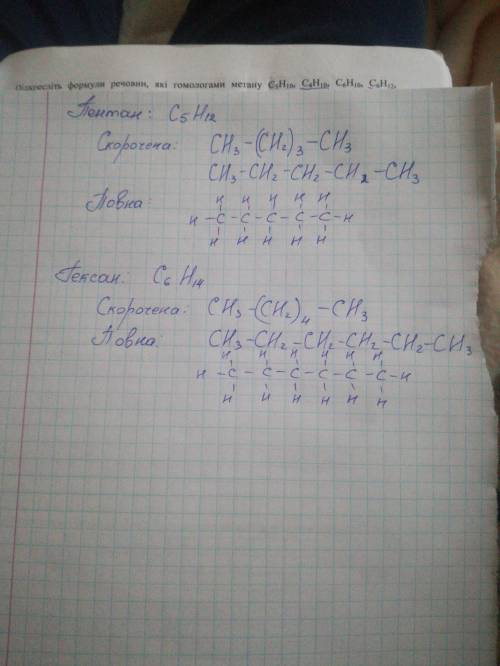 підкресліть формули речовин, які гомологами метану C₅H₁₀, C₄H₁₀, C₆H₁₀, C₆H₁₂,
Пентан: C₅H₁₂
Скорочена: CH₃-(CH₂)₃-CH₃
CH₃-CH₂-CH₂-CH₂-CH₃
Повна:
H H H H H
H - C - C - C - C - C - H
H H H H H
Гексан: C₆H₁₄
Скорочена: CH₃-(CH₂)₄-CH₃
Повна: CH₃-CH₂-CH₂-CH₂-CH₂-CH₃
H H H H H H
H - C - C - C - C - C - C - H
H H H H H H